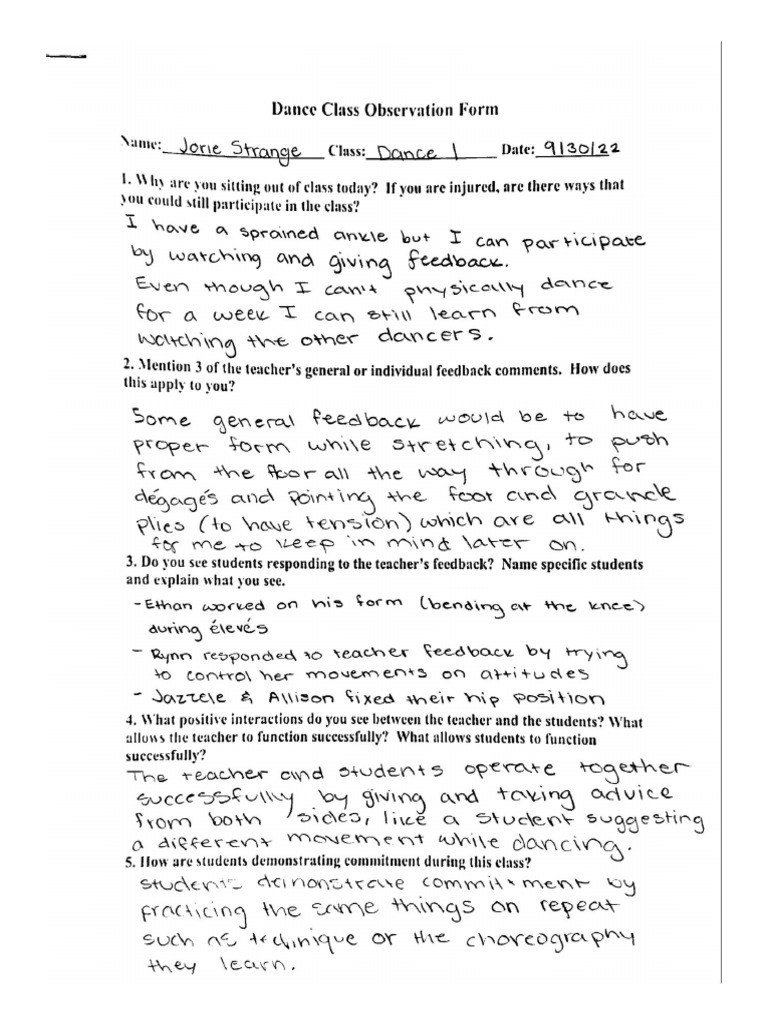 Dance Class Observation Form
Name: Jorie Strange Class: Dance 1 Date: 9/30/22
1. Why are you sitting out of class today? If you are injured, are there ways that
you could still participate in the class?
I have a sprained ankle but I can participate
by watching and giving feedback.
Even though I can't physically dance
for a week I can still learn from
watching the other dancers.
2. Mention 3 of the teacher's general or individual feedback comments. How does
this apply to you?
Some general feedback would be to have
proper form while stretching, to push
from the floor all the way through for
dégagés and pointing the foot and grande
plies (to have tension) which are all things
for me to keep in mind later on.
3. Do you see students responding to the teacher's feedback? Name specific students
and explain what you see.
- Ethan worked on his form (bending at the knee)
during élevés
- Rynn responded to teacher feedback by trying
to control her movements on attitudes
- Jazzele & Allison fixed their hip position
4. What positive interactions do you see between the teacher and the students? What
allows the teacher to function successfully? What allows students to function
successfully?
The teacher and students operate together
successfully by giving and taking advice
from both sides, like a student suggesting
a different movement while dancing.
5. How are students demonstrating commitment during this class?
students demonstrate commitment by
practicing the same things on repeat
such as technique or the choreography
they learn.